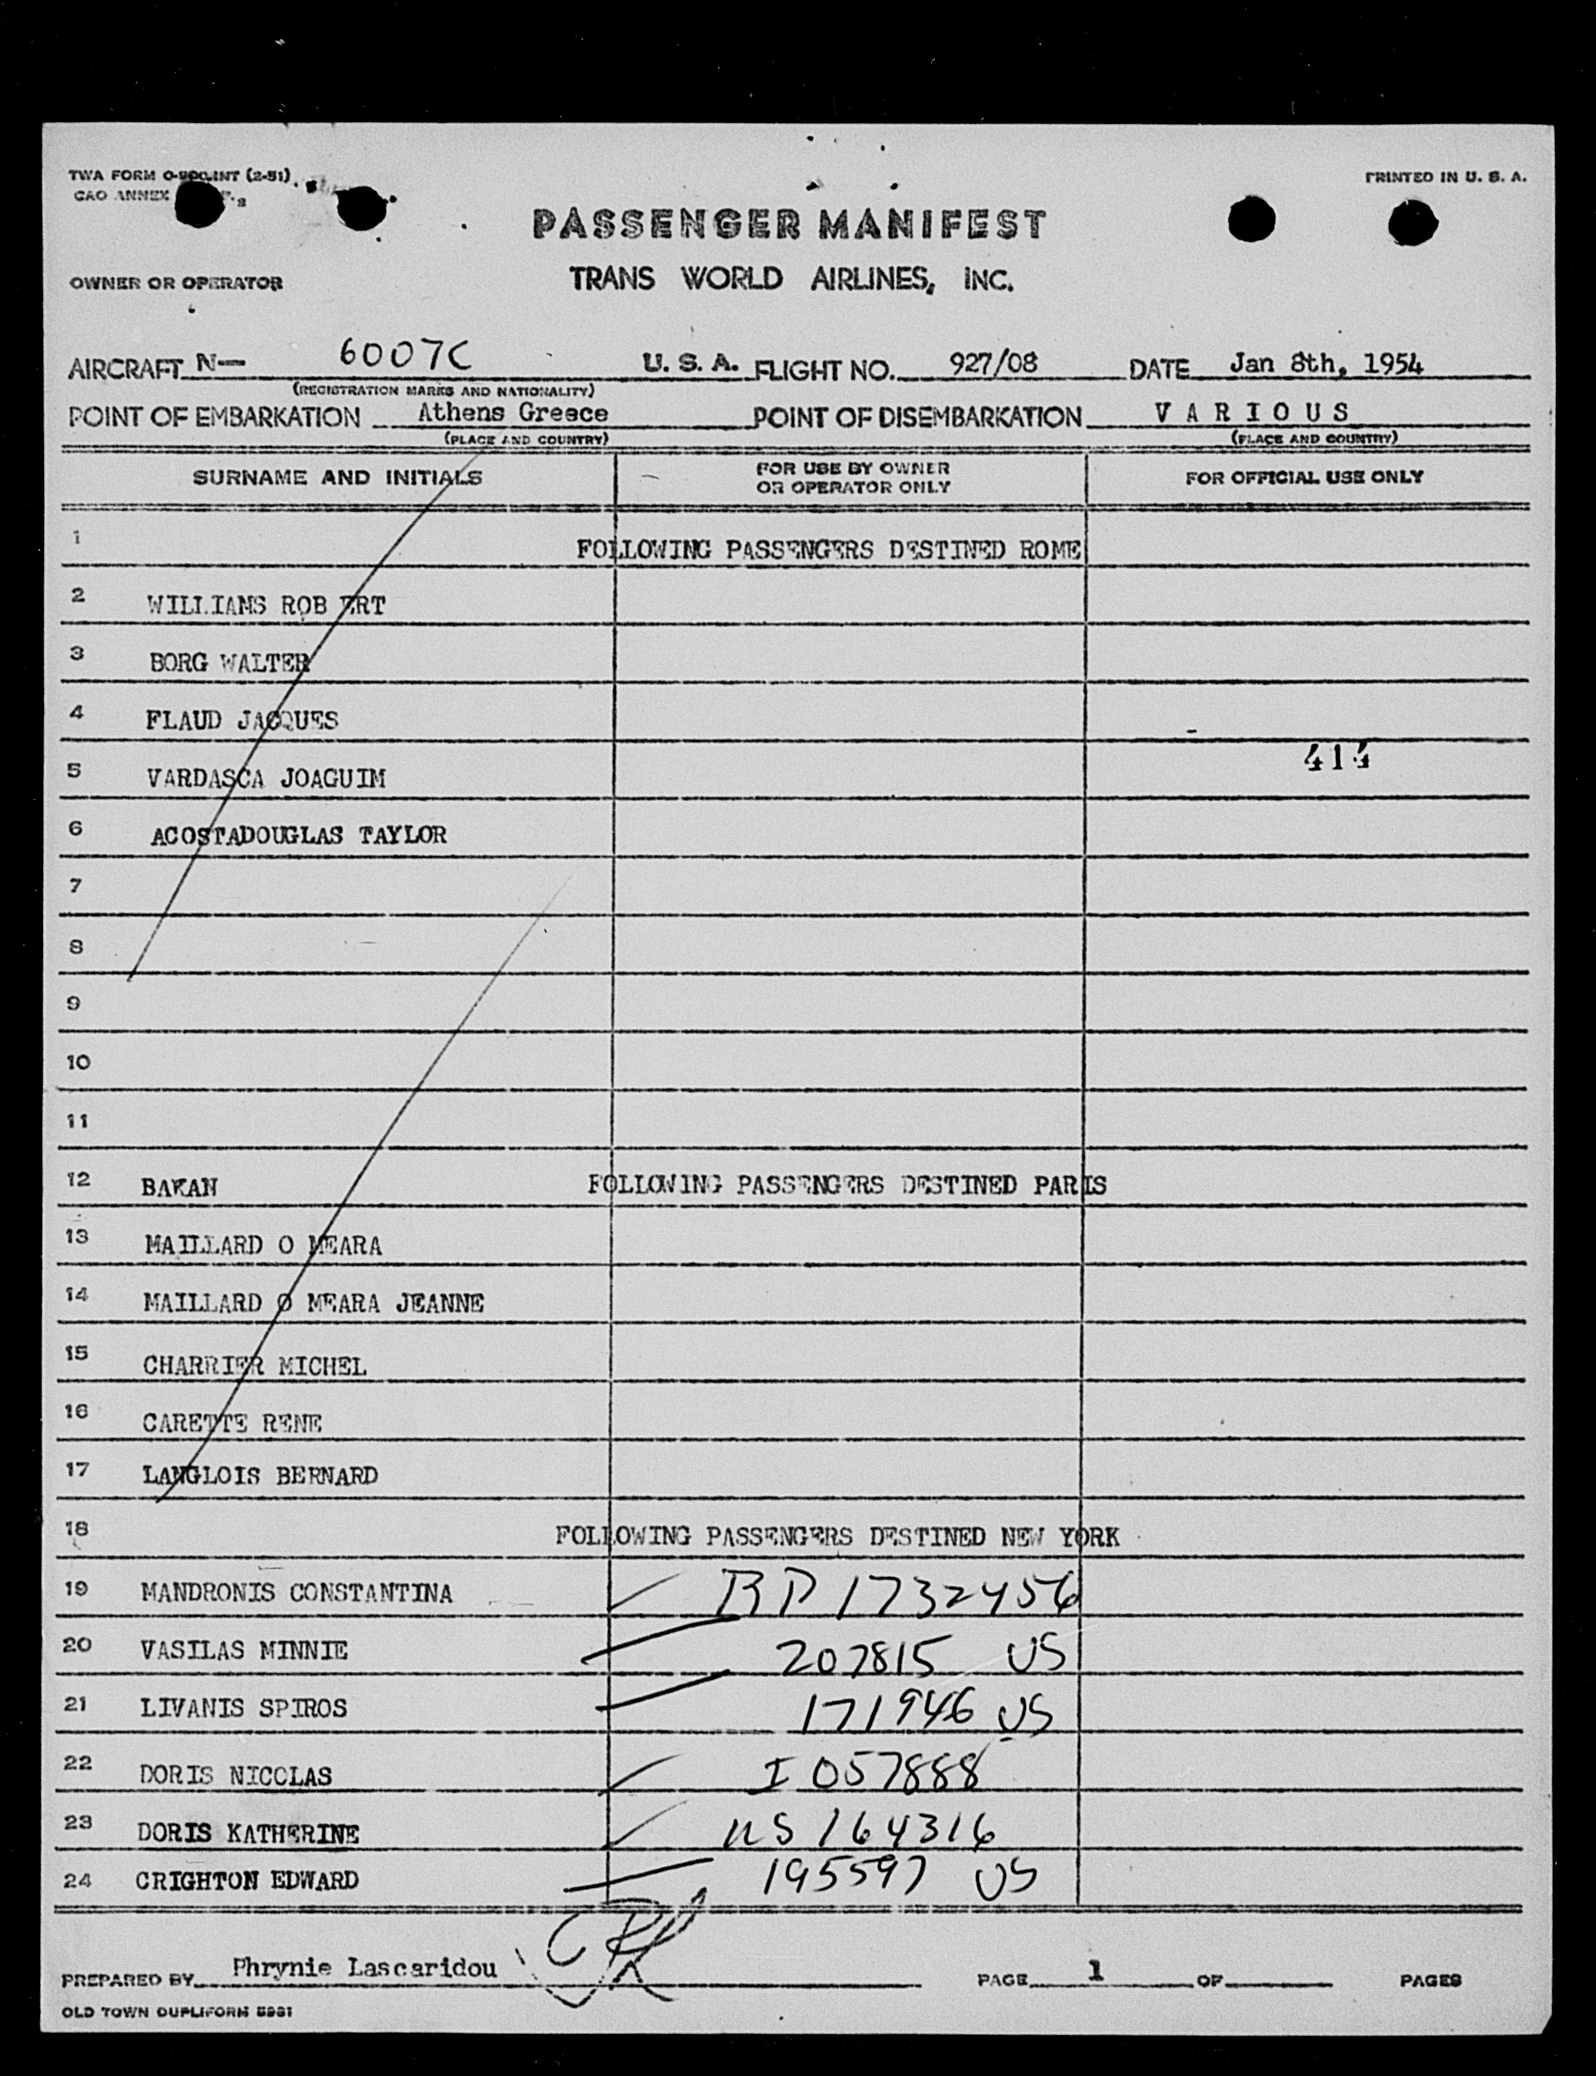 TWA FORM O-900-INT (2-51)
CAO ANNEX
PRINTED IN U. S. A.
PASSENGER MANIFEST
OWNER OR OPERATOR TRANS WORLD AIRLINES, INC.
AIRCRAFT N- 6007C U. S. A. FLIGHT NO. 927/08 DATE Jan 8th, 1954
(REGISTRATION MARKS AND NATIONALITY)
POINT OF EMBARKATION Athens Greece POINT OF DISEMBARKATION V A R I O U S
(PLACE AND COUNTRY) (PLACE AND COUNTRY)
SURNAME AND INITIALS FOR USE BY OWNER OR OPERATOR ONLY FOR OFFICIAL USE ONLY
1 FOLLOWING PASSENGERS DESTINED ROME
2 WILLIAMS ROB ERT
3 BORG WALTER
4 FLAUD JACQUES
5 VARDASCA JOAGUIM 414
6 ACOSTADOUGLAS TAYLOR
7
8
9
10
11
12 BAKAN FOLLOWING PASSENGERS DESTINED PARIS
13 MAILLARD O MEARA
14 MAILLARD O MEARA JEANNE
15 CHARRIER MICHEL
16 CARETTE RENE
17 LANGLOIS BERNARD
18 FOLLOWING PASSENGERS DESTINED NEW YORK
19 MANDRONIS CONSTANTINA RP 1732456
20 VASILAS MINNIE 207815 US
21 LIVANIS SPIROS 171946 US
22 DORIS NICOLAS I 057888
23 DORIS KATHERINE US 164316
24 CRIGHTON EDWARD 195597 US
PREPARED BY Phrynie Lascaridou PAGE 1 OF PAGES
OLD TOWN DUPLIFORM